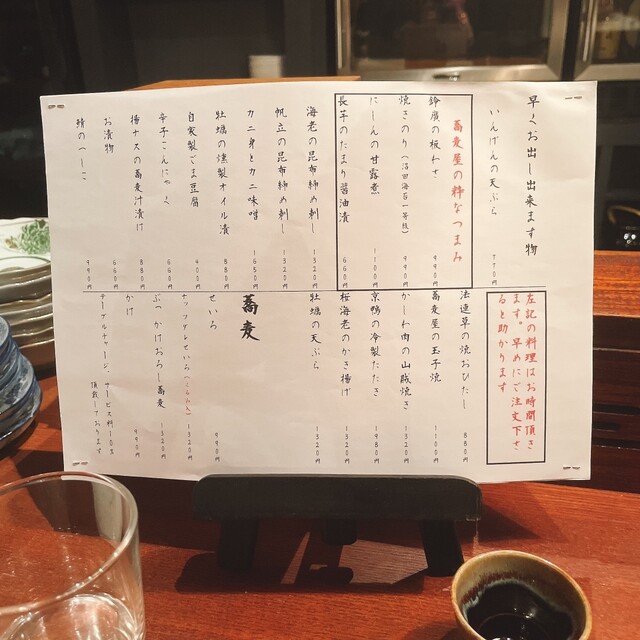 早くお出し出来ます物
いんげんの天ぷら 770円
蕎麦屋の粋なつまみ
鈴廣の板わさ 990円
焼きのり(沼田海苔一等級) 990円
にしんの甘露煮 1100円
長芋のたまり醤油漬 660円
海老の昆布締め刺し 1320円
帆立の昆布締め刺し 1320円
カニ身とカニ味噌 1650円
牡蠣の燻製オイル漬 880円
自家製ごま豆腐 400円
辛子こんにゃく 660円
揚ナスの蕎麦汁漬け 880円
お漬物 660円
鯖のへしこ 990円
左記の料理はお時間頂き
ます。早めにご注文下さ
ると助かります
法連草の焼おひたし 880円
蕎麦屋の玉子焼 1100円
かしわ肉の山賊焼き 1320円
京鴨の冷製たたき 1980円
桜海老のかき揚げ 1320円
牡蠣の天ぷら 1320円
蕎麦
せいろ 990円
1320円
ぶっかけおろし蕎麦 1320円
かけ 990円
テーブルチャージ、サービス料10%
頂戴しております